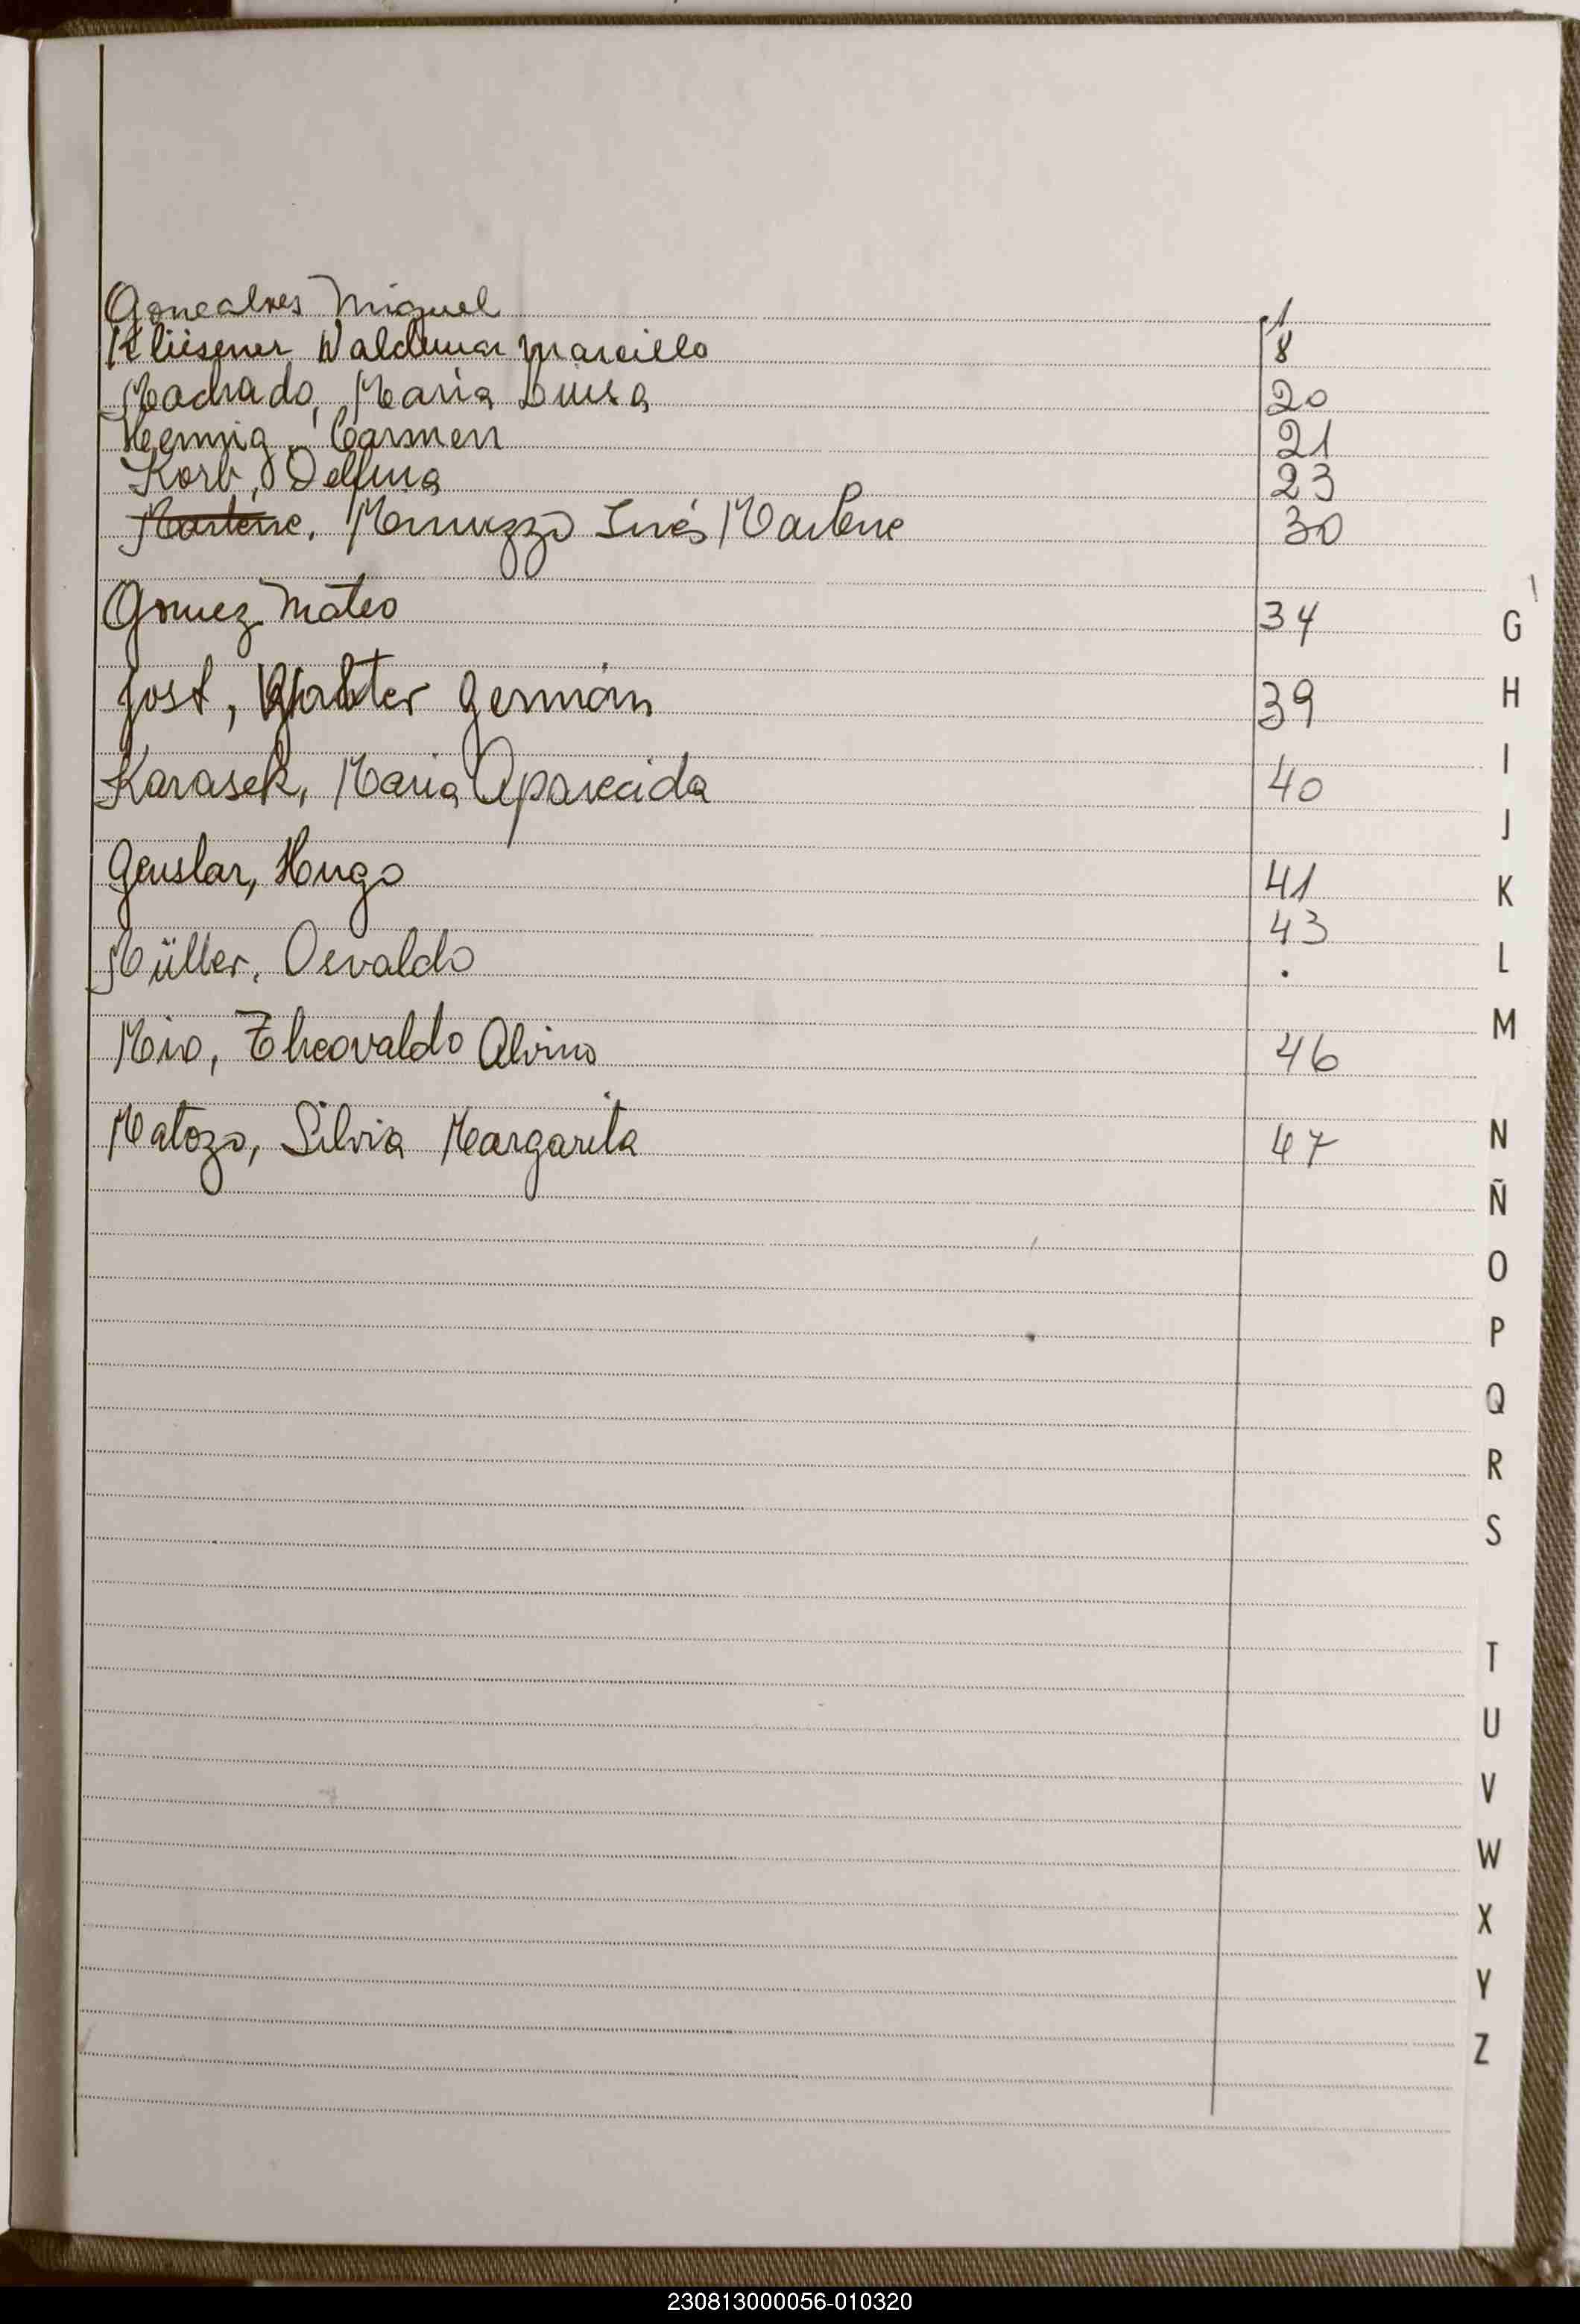 Goncalves Miguel 1
Kliësener Waldemar Marcillo 8
Machado, Maria Luisa 20
Hennig, Carmen 21
Korb, Delfina 23
Marlene, Menuzzo Inés Marlene 30
Gomez Mateo 34
G
Jost, Walter Germán 39
H
I
Karasek, Maria Aparecida 40
J
Geuslar, Hugo 41
K
43
Müller, Osvaldo
L
M
Mio, Theovaldo Alvino 46
Matozo, Silvia Margarita 47
N
Ñ
O
P
Q
R
S
T
U
V
W
X
Y
Z
230813000056-010320